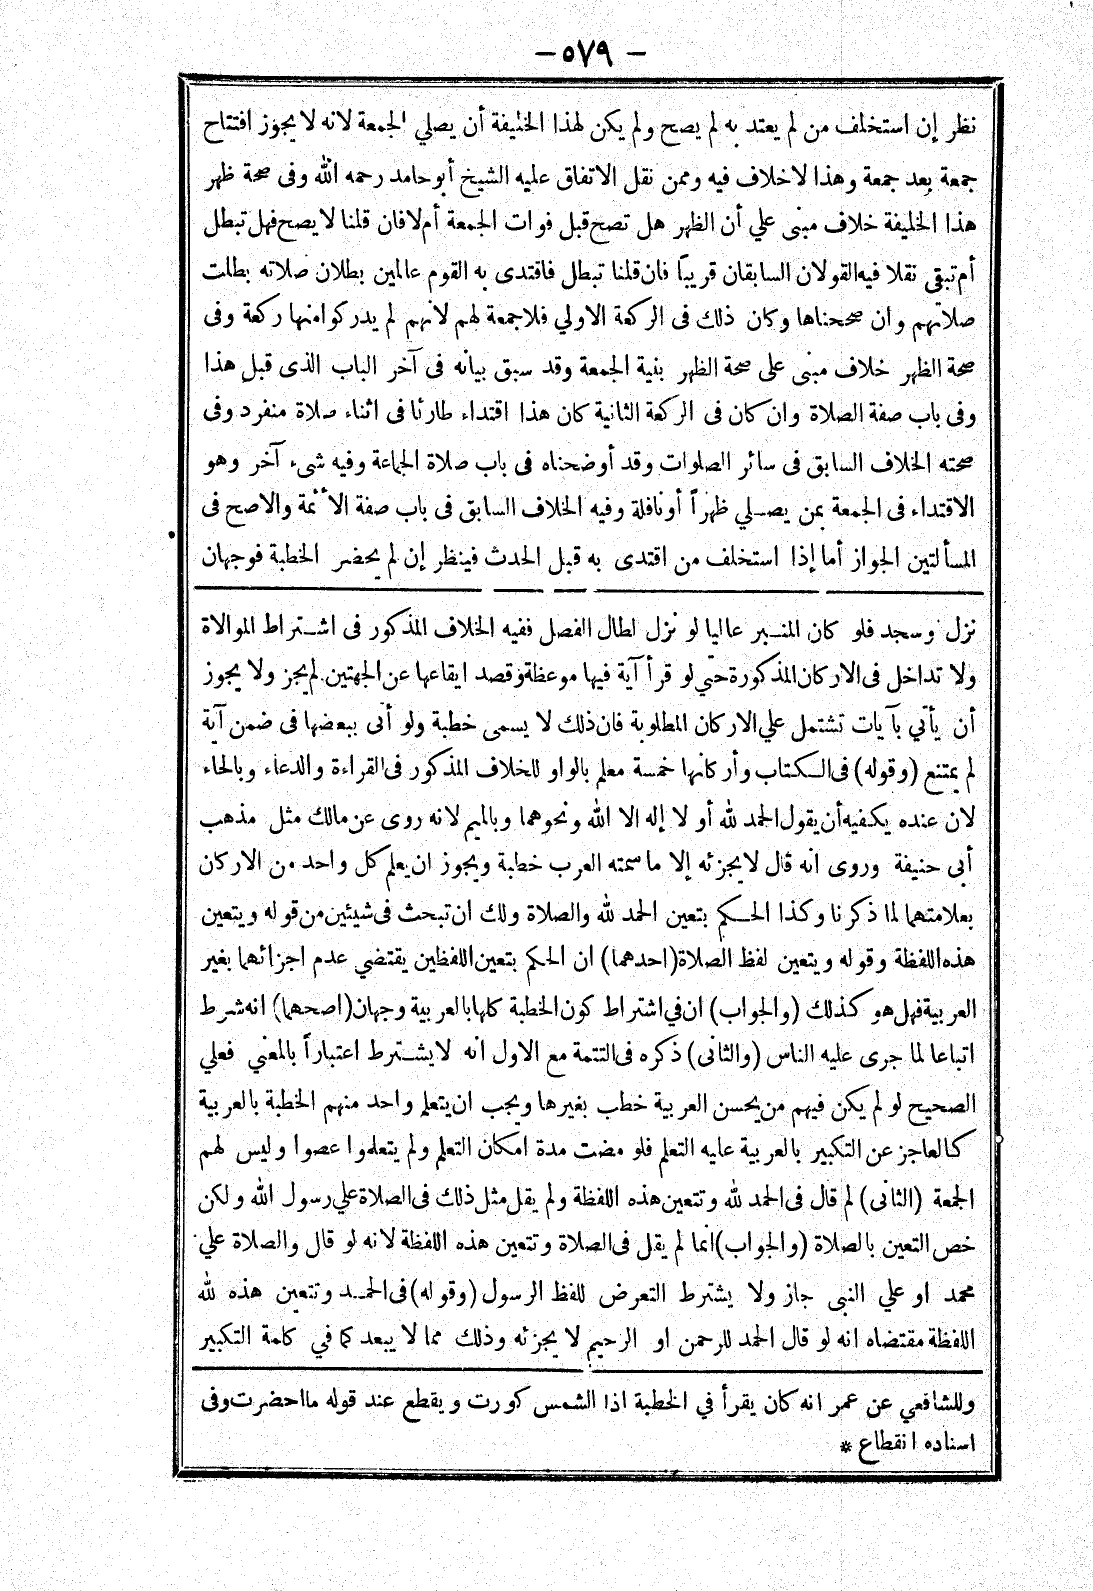 — ٥٧٩ —
نظر إن استخلف من لم يعتد به لم يصح ولم يكن لهذا الخليفة أن يصلي الجمعة لانه لا يجوز افتتاح
جمعة بعد جمعة وهذا لاخلاف فيه وممن نقل الاتفاق عليه الشيخ أبوحامد رحمه الله وفى صحة ظهر
هذا الخليفة خلاف مبنى علي أن الظهر هل تصح قبل فوات الجمعة أم لا فان قلنا لا يصح فهل تبطل
أم تبقى نفلا فيه القولان السابقان قريبًا فان قلنا تبطل فاقتدى به القوم عالمين بطلان صلاته بطلت
صلاتهم وان صححناها وكان ذلك فى الركعة الاولي فلا جمعة لهم لانهم لم يدركوا منها ركعة وفى
صحة الظهر خلاف مبنى على صحة الظهر بنية الجمعة وقد سبق بيانه فى آخر الباب الذى قبل هذا
وفى باب صفة الصلاة وان كان فى الركعة الثانية كان هذا اقتداء طارئا فى اثناء صلاة منفرد وفى
صحته الخلاف السابق فى سائر الصلوات وقد أوضحناه فى باب صلاة الجماعة وفيه شىء آخر وهو
الاقتداء فى الجمعة بمن يصلي ظهراً أو نافلة وفيه الخلاف السابق فى باب صفة الأئمة والاصح فى
المسألتين الجواز أما إذا استخلف من اقتدى به قبل الحدث فينظر إن لم يحضر الخطبة فوجهان
نزل وسجد فلو كان المنبر عاليا لو نزل لطال الفصل ففيه الخلاف المذكور فى اشتراط الموالاة
ولا تداخل فى الاركان المذكورة حتي لو قرأ آية فيها موعظة وقصد ايقاعها عن الجهتين لم يجز ولا يجوز
أن يأتي بآيات تشتمل علي الاركان المطلوبة فان ذلك لا يسمى خطبة ولو أتى ببعضها فى ضمن آية
لم يمتنع (وقوله) فى الكتاب وأركانها خمسة معلم بالواو للخلاف المذكور فى القراءة والدعاء وبالحاء
لان عنده يكفيه أن يقول الحمد لله أو لا إله الا الله ونحوهما وبالميم لانه روى عن مالك مثل مذهب
أبى حنيفة وروى انه قال لا يجزئه إلا ما سمته العرب خطبة ويجوز ان يعلم كل واحد من الاركان
بعلامتهما لما ذكرنا وكذا الحكم بتعين الحمد لله والصلاة ولك ان تبحث فى شيئين من قوله ويتعين
هذه اللفظة وقوله ويتعين لفظ الصلاة (احدهما) ان الحكم بتعين اللفظين يقتضي عدم اجزائهما بغير
العربية فهل هو كذلك (والجواب) ان في اشتراط كون الخطبة كلها بالعربية وجهان (اصحهما) انه شرط
اتباعا لما جرى عليه الناس (والثانى) ذكره فى التتمة مع الاول انه لا يشترط اعتباراً بالمعني فعلي
الصحيح لو لم يكن فيهم من يحسن العربية خطب بغيرها ويجب ان يتعلم واحد منهم الخطبة بالعربية
كالعاجز عن التكبير بالعربية عليه التعلم فلو مضت مدة امكان التعلم ولم يتعلموا عصوا وليس لهم
الجمعة (الثانى) لم قال فى الحمد لله وتتعين هذه اللفظة ولم يقل مثل ذلك فى الصلاة علي رسول الله ولكن
خص التعين بالصلاة (والجواب) انما لم يقل فى الصلاة وتتعين هذه اللفظة لانه لو قال والصلاة علي
محمد او علي النبى جاز ولا يشترط التعرض للفظ الرسول (وقوله) فى الحمد وتتعين هذه لله
اللفظة مقتضاه انه لو قال الحمد للرحمن او الرحيم لا يجزئه وذلك مما لا يبعد كما في كلمة التكبير
وللشافعي عن عمر انه كان يقرأ في الخطبة اذا الشمس كورت ويقطع عند قوله ما احضرت وفى
اسناده انقطاع *